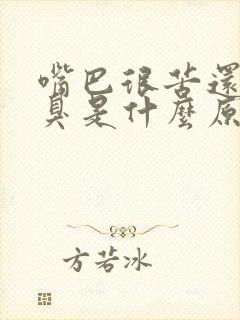 嘴巴很苦還
臭是什麼原
方若冰